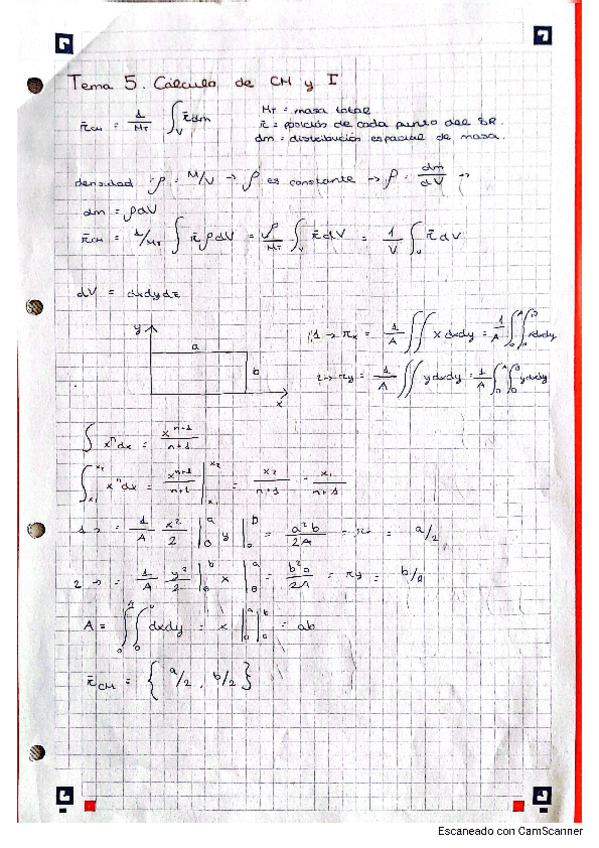 Tema 5. Cálculo de CM y I
r̄CM = 1/MT ∫V r̄ dm
MT = masa total
r̄ = posición de cada punto del SR.
dm = distribución espacial de masa.
densidad : ρ = M/V → ρ es constante → ρ = dm/dV →
dm = ρdV
r̄CM = 1/MT ∫ r̄ ρdV = ρ/MT ∫V r̄ dV = 1/V ∫V r̄ dV
dV = dxdydz
y
a
b
x
1 → rx = 1/A ∬ x dxdy = 1/A ∫∫ xdxdy
2 → ry = 1/A ∬ y dxdy = 1/A ∫∫ ydxdy
∫ xⁿ dx = xⁿ⁺¹/n+1
∫x₁^x₂ xⁿ dx = xⁿ⁺¹/n+1 |x₁^x₂ = x₂/n+1 - x₁/n+1
1 → = 1/A x²/2 |₀^a y |₀^b = a²b/2A = rx = a/2
2 → = 1/A y²/2 |₀^b x |₀^a = b²a/2A = ry =
A = ∫₀∫₀ dxdy = x |₀^a |₀^b = ab
r̄CM = { a/2 , b/2 }
Escaneado con CamScanner